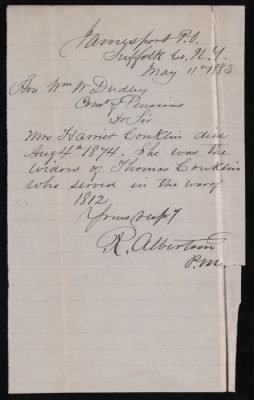 Jamesport P.O.
Suffolk Co. N.Y.
May 11th 1883
Hon Wm W Dudley
Comr of Pensions
Dr Sir
Mrs Harriet Conklin died
Aug 4th 1874. She was the
widow of Thomas Conklin
who served in the war of
1812
Yours respy
R. Albertson
P.M.